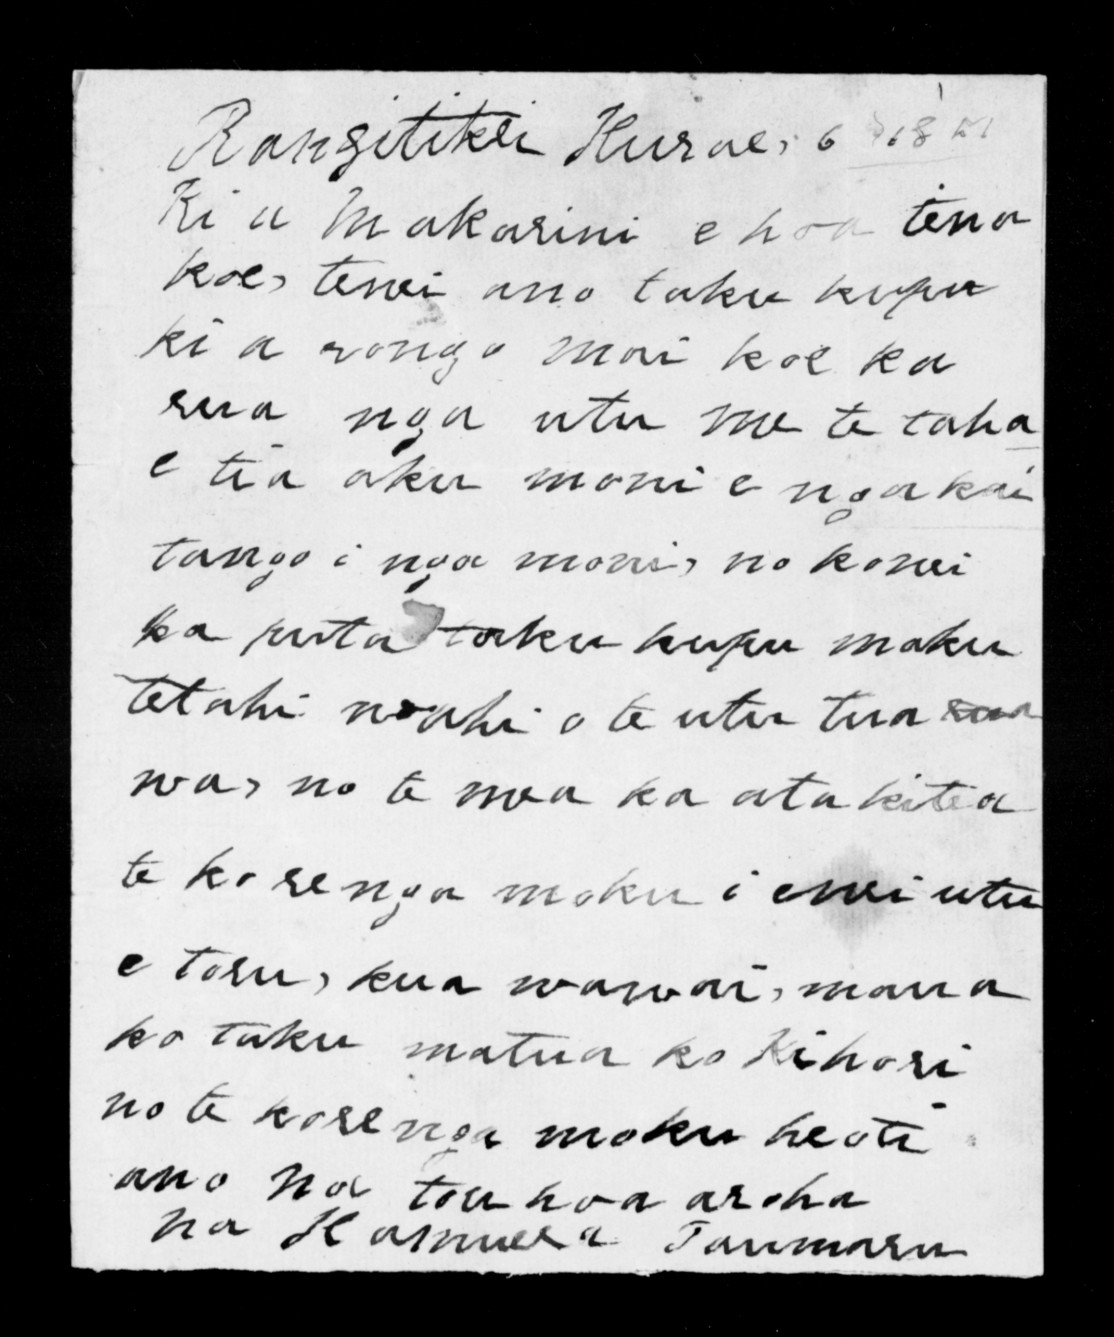 Rangitikei Hurae, 6 1851
Ki a Makarini e hoa tena
koe, tenei ano taku kupu
ki a rongo mai koe ka
rua nga utu me te taha
e tia aku moni e ngakai
tango i nga moni, no konei
ka puta taku kupu maku
tetahi wahi o te utu tua
wa, no te mea ka ata kitea
te korenga moku i enei utu
e toru, kua wawai, maua
ko taku matua ko Kihori
no te korenga moku heoti
ano na tou hoa aroha
na Hamuera Taumaru